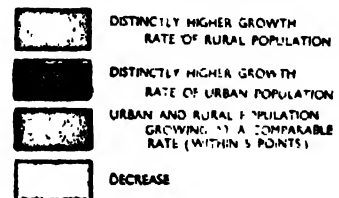 DISTINCTLY HIGHER GROWTH
RATE OF RURAL POPULATION
DISTINCTLY HIGHER GROWTH
RATE OF URBAN POPULATION
URBAN AND RURAL POPULATION
GROWING AT A COMPARABLE
RATE (WITHIN 5 POINTS)
DECREASE